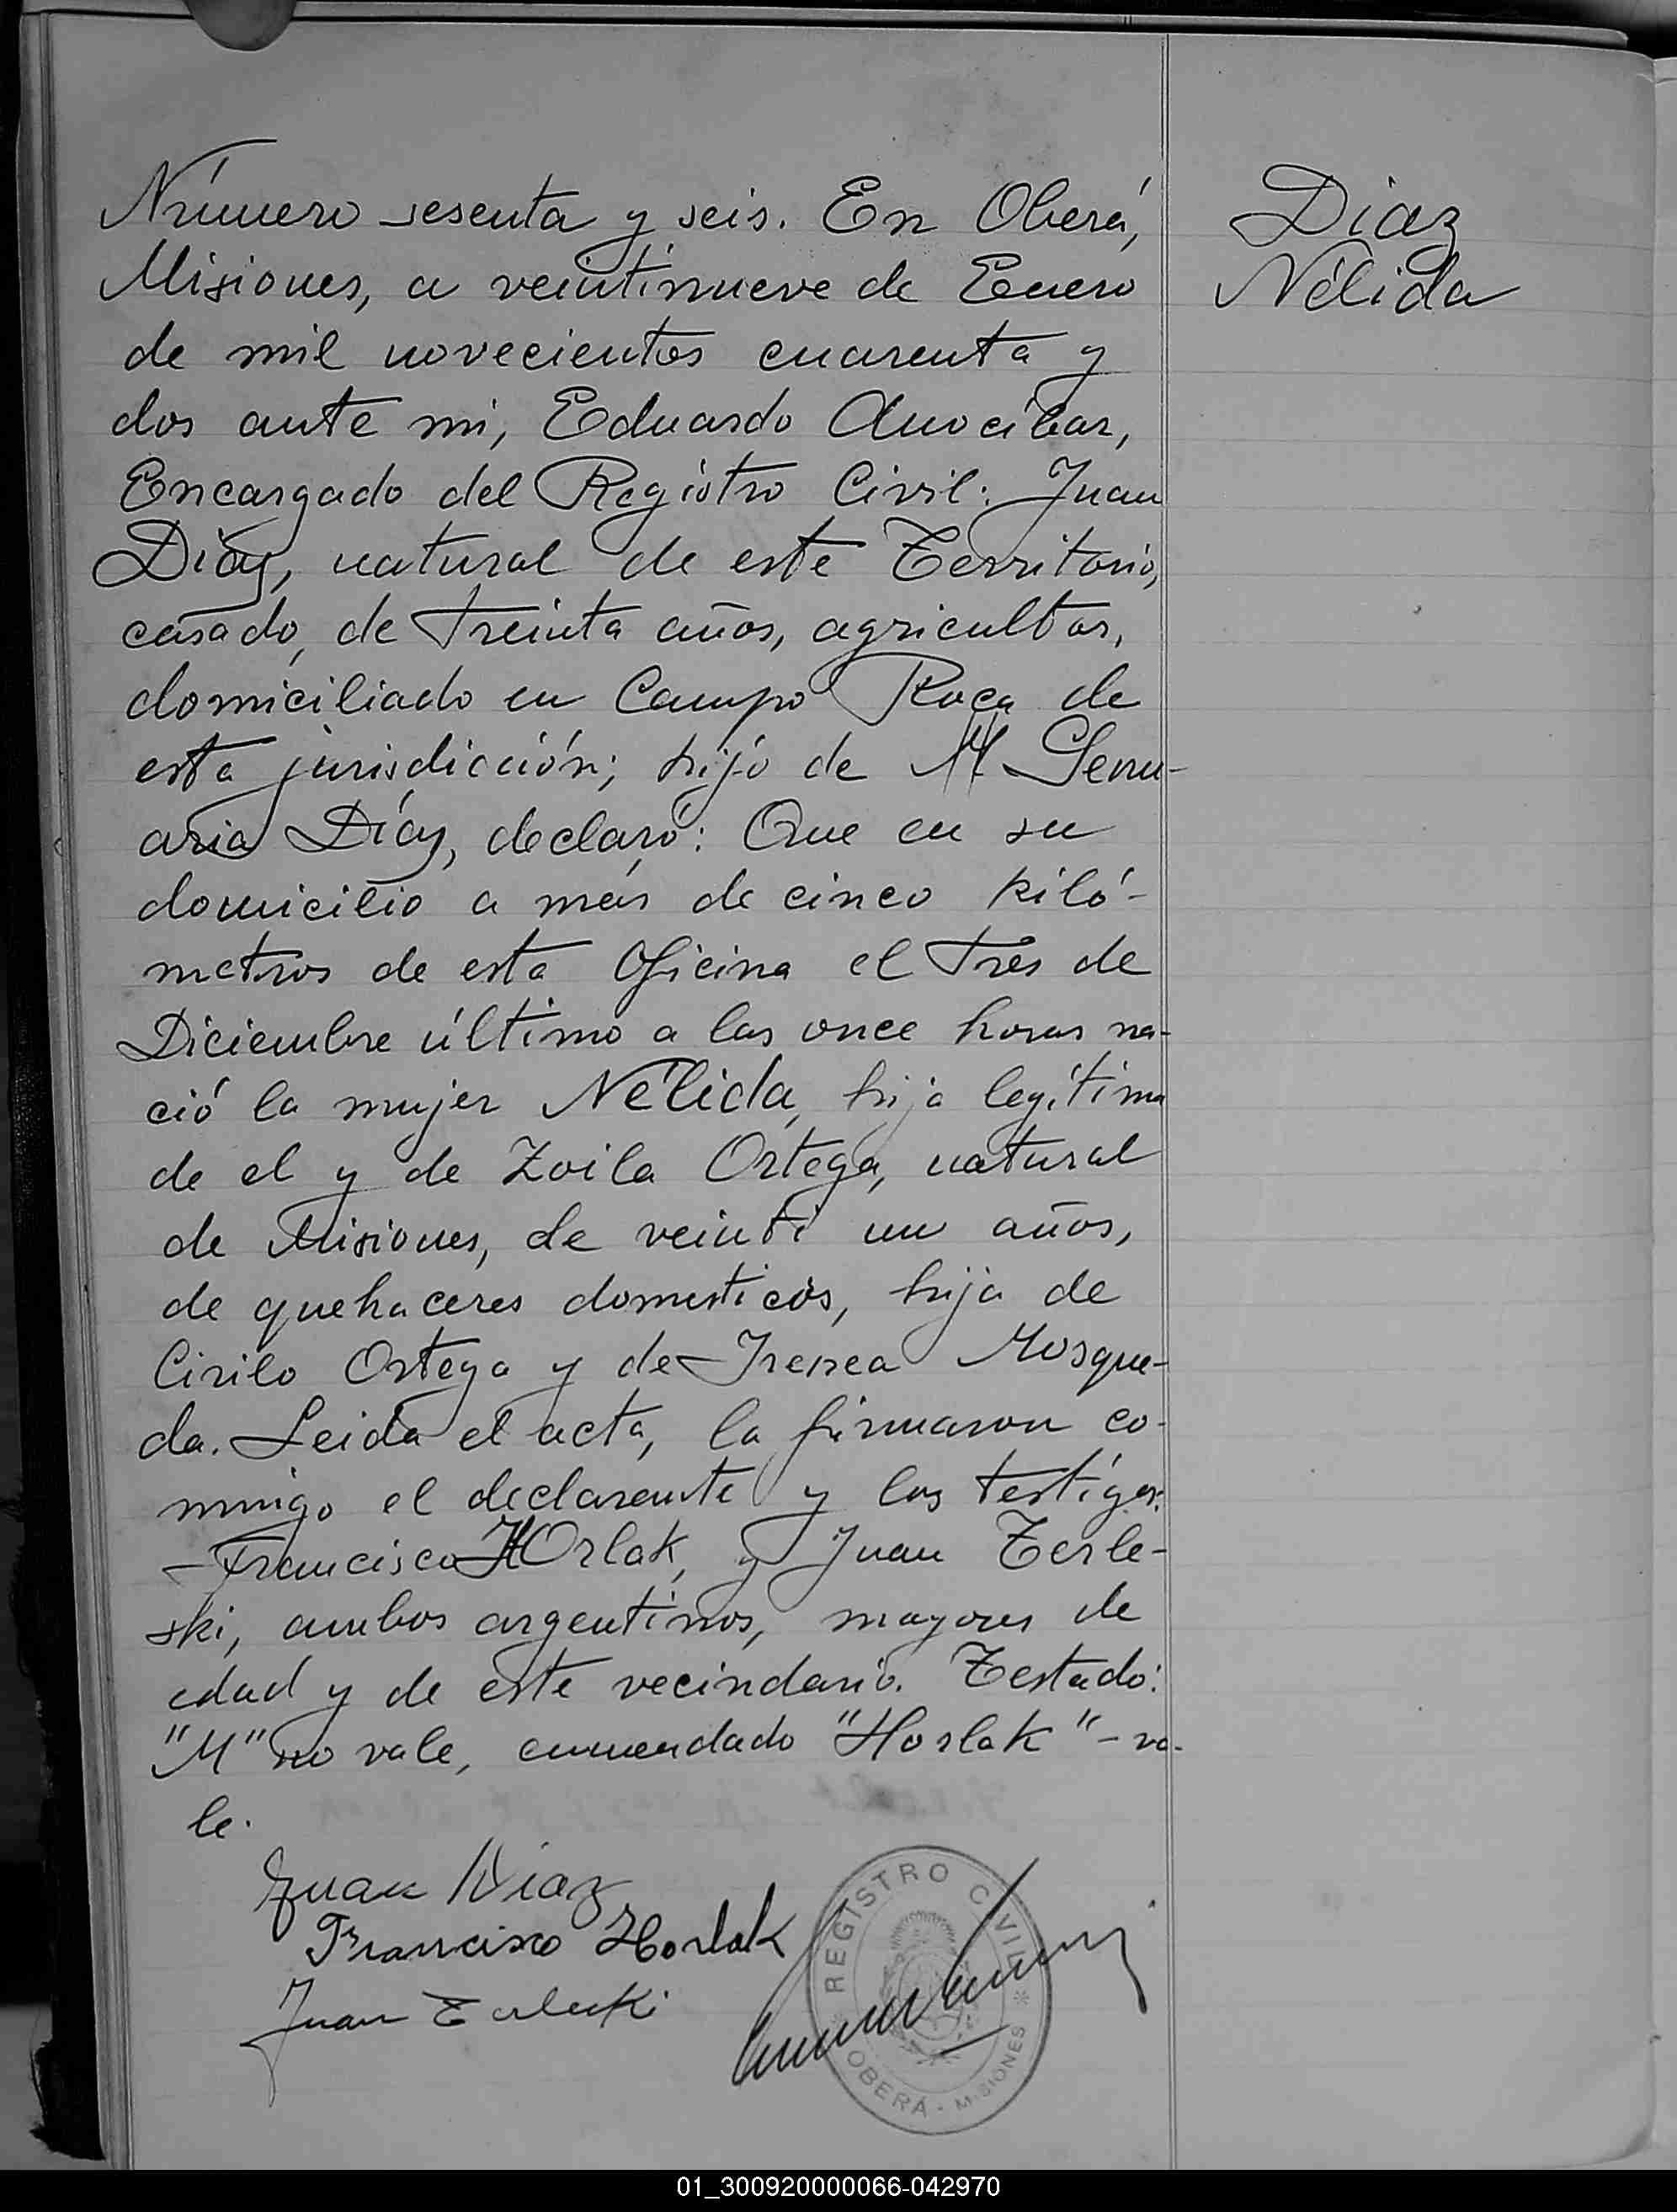 Número sesenta y seis. En Oberá,
Misiones, a veintinueve de Enero
de mil novecientos cuarenta y
dos ante mi, Eduardo Anocibar,
Encargado del Registro Civil: Juan
Díaz, natural de este Territorio,
casado, de treinta años, agricultor,
domiciliado en Campo Roca de
esta jurisdicción; hijo de M Genu-
aria Díaz, declaró: Que en su
domicilio a más de cinco kiló-
metros de esta Oficina el tres de
Diciembre último a las once horas na-
ció la mujer Nélida, hija legítima
de el y de Zoila Ortega, natural
de Misiones, de veinti un años,
de quehaceres domesticos, hija de
Cirilo Ortega y de Irenea Mosque-
da. Leida el acta, la firmaron co-
nmigo el declarante y los testigos:
Francisco Horlak, y Juan Terle-
ski, ambos argentinos, mayores de
edad y de este vecindario. Testado:
"M" no vale, enmendado "Horlak" - va-
le.
Diaz
Nélida
Juan Diaz
Francisco Horlak
Juan Terlecki
REGISTRO CIVIL
OBERÁ - MISIONES
01_300920000066-042970